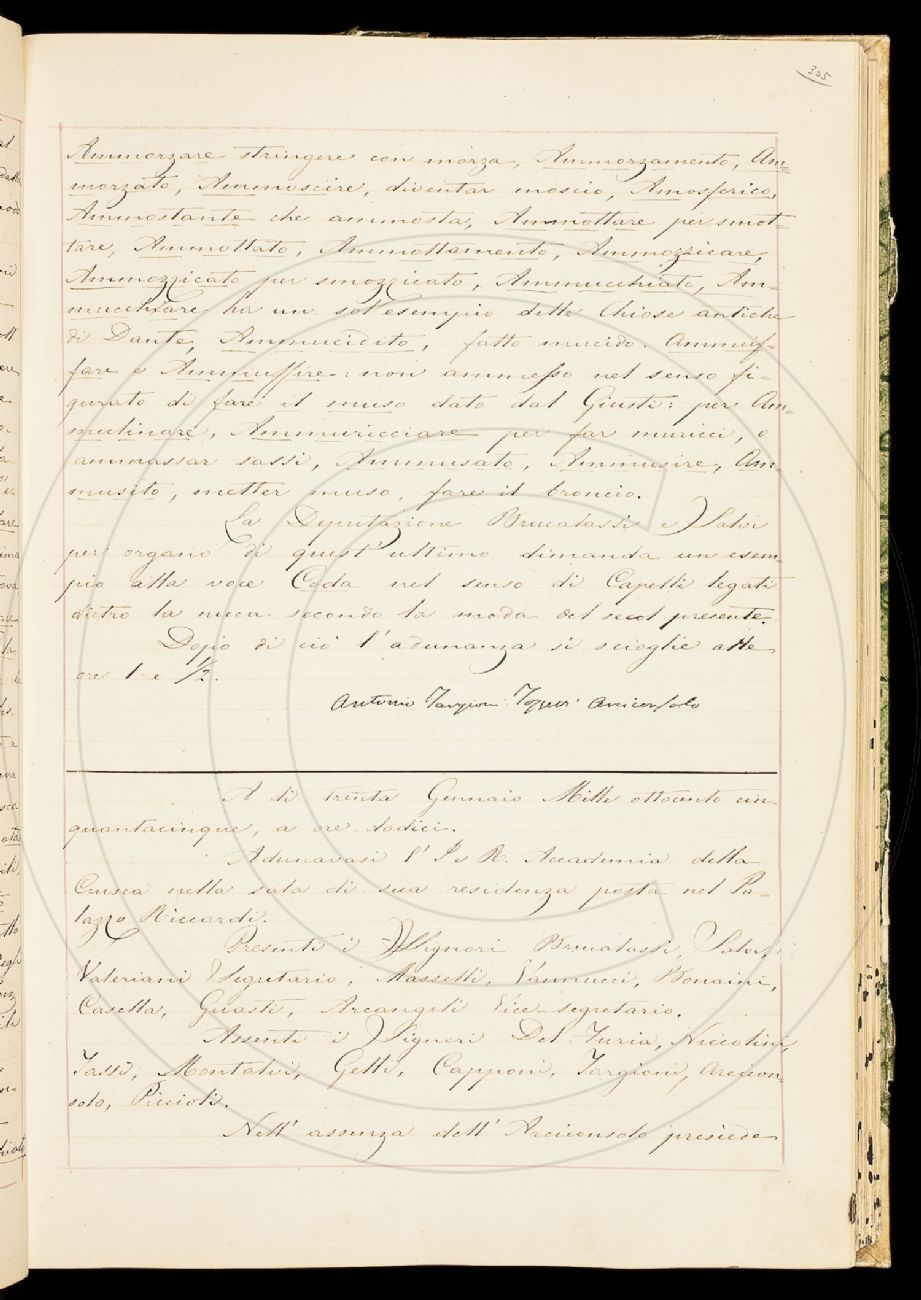 305
Ammorzare stringere con morza, Ammorzamento, Am=
morzato, Ammoscire, diventar moscio, Amosferico,
Ammostante che ammosta, Ammottare per smot=
tare, Ammottato, Ammottamento, Ammozzicare,
Ammozzicato per smozzicato, Ammucchiato, Am=
mucchiare ha un sol'esempio delle Chiose antiche
di Dante, Ammucidito, fatto mucido. Ammuf=
fare e Ammuffire: non ammesso nel senso fi=
gurato di fare il muso dato dal Giusti: per Am=
mulinare, Ammuricciare per far muricci, o
ammassar sassi, Ammusato, Ammusire, Am
musito, metter muso, fare il broncio.
La Deputazione Brucalassi e Salvi
per organo di quest'ultimo dimanda un esem
pio alla voce Coda nel senso di Capelli legati
dietro la nuca secondo la moda del secol presente.
Dopo di ciò l'adunanza si scioglie alle
ore 1 e 1/2.
Antonio Targioni Tozzetti Arciconsolo
A dì trenta Gennaio Mille ottocento cin=
quantacinque, a ore dodici.
Adunavasi l'I. e R. Accademia della
Crusca nella sala di sua residenza posta nel Pa=
lazzo Riccardi.
Presenti i Signori Brucalassi, Salvi,
Valeriani Segretario, Masselli, Vannucci, Bonaini,
Casella, Guasti, Arcangeli Vice-segretario.
Assenti i Signori Del Furia, Niccolini,
Tassi, Montalvi, Gelli, Capponi, Targioni, Arcicon=
solo, Piccioli.
Nell' assenza dell' Arciconsolo presiede